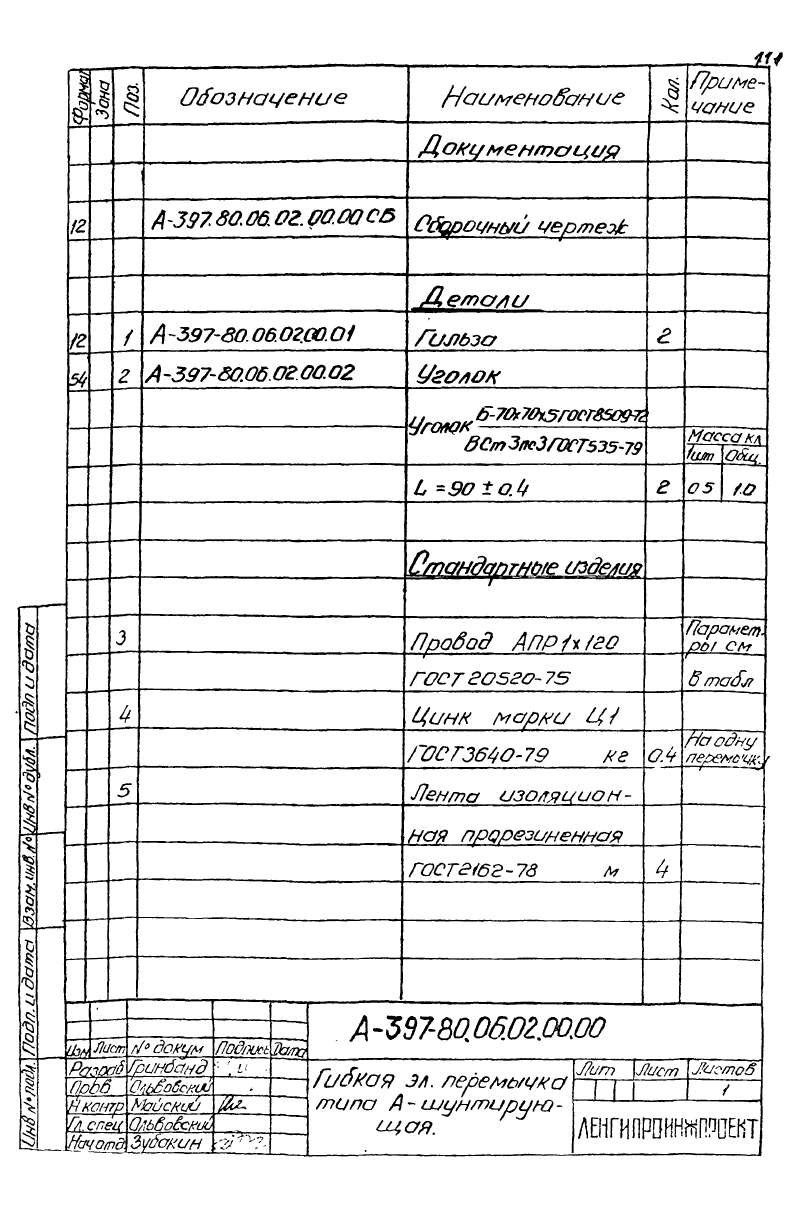 111
Формат Зона Поз. Обозначение Наименование Кол. Приме-
чание
Документация
12 А-397.80.06.02.00.00 СБ Сборочный чертеж
Детали
12 1 А-397-80.06.02.00.01 Гильза 2
54 2 А-397-80.06.02.00.02 Уголок
Уголок Б-70х70х5 ГОСТ 8509-72
ВСт3пс3 ГОСТ 535-79
Масса кг
1шт Общ.
L = 90 ± 0.4 2 0 5 1.0
Стандартные изделия
3 Провод АПР 1х120 Парамет-
ры см
ГОСТ 20520-75 в табл
4 Цинк марки Ц1
ГОСТ 3640-79 кг 0.4 На одну
перемычку
5 Лента изоляцион-
ная прорезиненная
ГОСТ 2162-78 м 4
Инв № подл. Подп. и дата Взам. инв. № Инв № дубл. Подп и дата
А-397-80.06.02.00.00
Изм Лист № докум Подпись Дата
Разраб Гринбанд
Пров Ольвовский
Н контр Майский
Гл. спец Ольвовский
Нач отд Зубакин
Гибкая эл. перемычка
типа А-шунтирую-
щая.
Лит Лист Листов
1
ЛЕНГИПРОИНЖПРОЕКТ